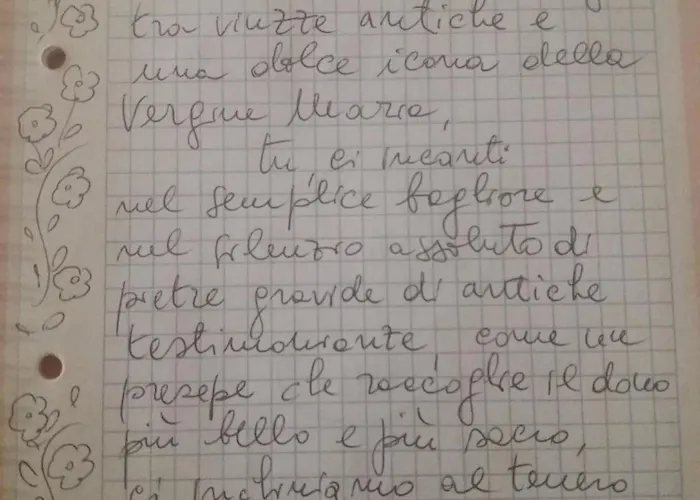 tra viuzze antiche e
una dolce icona della
Vergine Maria,
tu, ci incanti
nel semplice bagliore e
nel silenzio assoluto di
pietre gravide di antiche
testimonianze, come un
presepe che raccoglie il dono
più bello e più sacro,
ci inchiniamo al tenero